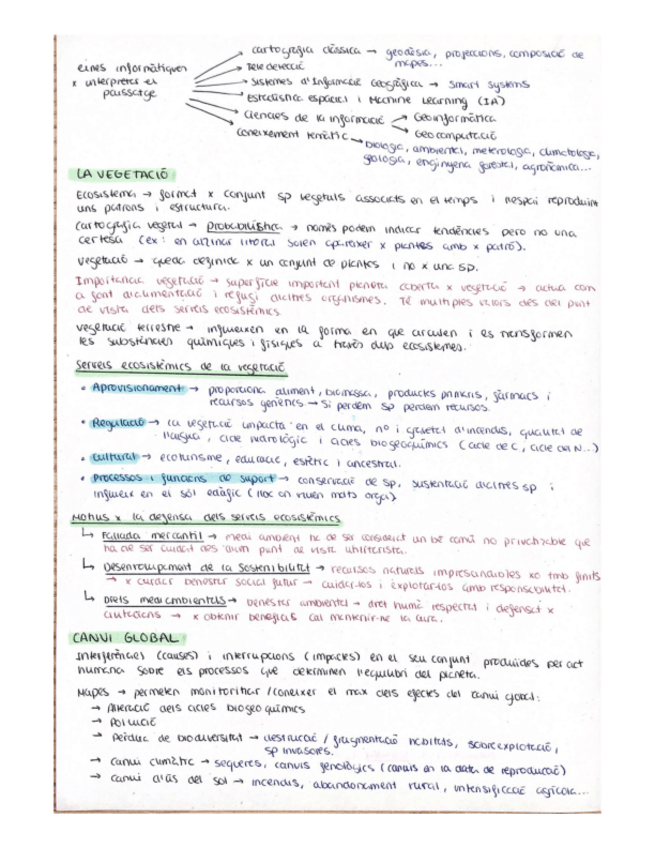 eines informàtiques
x interpretar el
paisatge
cartografia clàssica → geodèsia, projeccions, composició de
mapes...
Teledetecció
Sistemes d'Informació Geogràfica → Smart Systems
Estadística espacial i Machine Learning (IA)
Ciències de la informació
Geoinformàtica
Geocomputació
Coneixement temàtic → biologia, ambiental, meterologia, climatologia,
geologia, enginyeria forestal, agronòmica...
LA VEGETACIÓ
Ecosistema → format x conjunt sp vegetals associats en el temps i l'espai reproduint
uns patrons i estructura.
Cartografia vegetal → probabilística → només podem indicar tendències però no una
certesa (ex: en alzinar litoral solen aparèixer x plantes amb x patró).
Vegetació → queda definida x un conjunt de plantes i no x una sp.
Importància vegetació → superfície important planeta coberta x vegetació → actua com
a font d'alimentació i refugi d'altres organismes. Té múltiples valors des del punt
de vista dels serveis ecosistèmics.
Vegetació terrestre → influeixen en la forma en que circulen i es transformen
les substàncies químiques i físiques a través dels ecosistemes.
Serveis ecosistèmics de la vegetació
• Aprovisionament → proporciona aliment, biomassa, productes primaris, fàrmacs i
recursos genètics → Si perdem sp perdem recursos.
• Regulació → la vegetació impacta en el clima, nº i gravetat d'incendis, qualitat de
l'aigua, cicle hidrològic i cicles biogeoquímics (cicle de C, cicle del N...)
• Cultural → ecoturisme, educació, estètic i ancestral.
• Processos i funcions de suport → conservació de sp, sustentació d'altres sp i
influeix en el sòl edàfic (lloc on viuen molts orga)
Motius x la defensa dels serveis ecosistèmics
↳ Fallada mercantil → medi ambient ha de ser considerat un bé comú no privatitzable que
ha de ser cuidat des d'un punt de vista utilitarista.
↳ Desenvolupament de la Sostenibilitat → recursos naturals imprescindibles xo tmb finits
→ x cuidar benestar social futur → cuidar-los i explotar-los amb responsabilitat.
↳ Drets mediambientals → benestar ambiental → dret humà respectat i defensat x
ciutadans → x obtenir beneficis cal mantenir-ne la cura.
CANVI GLOBAL
Interferències (causes) i interrupcions (impactes) en el seu conjunt produïdes per act
humana sobre els processos que determinen l'equilibri del planeta.
Mapes → permeten monitoritzar / conèixer el max dels efectes del canvi global:
→ Alteració dels cicles biogeoquímics
→ Pol·lució
→ Pèrdua de biodiversitat → destrucció / fragmentació hàbitats, sobreexplotació,
sp invasores.
→ canvi climàtic → sequeres, canvis fenològics (canvis en la data de reproducció)
→ canvi d'ús del sòl → incendis, abandonament rural, intensificació agrícola...